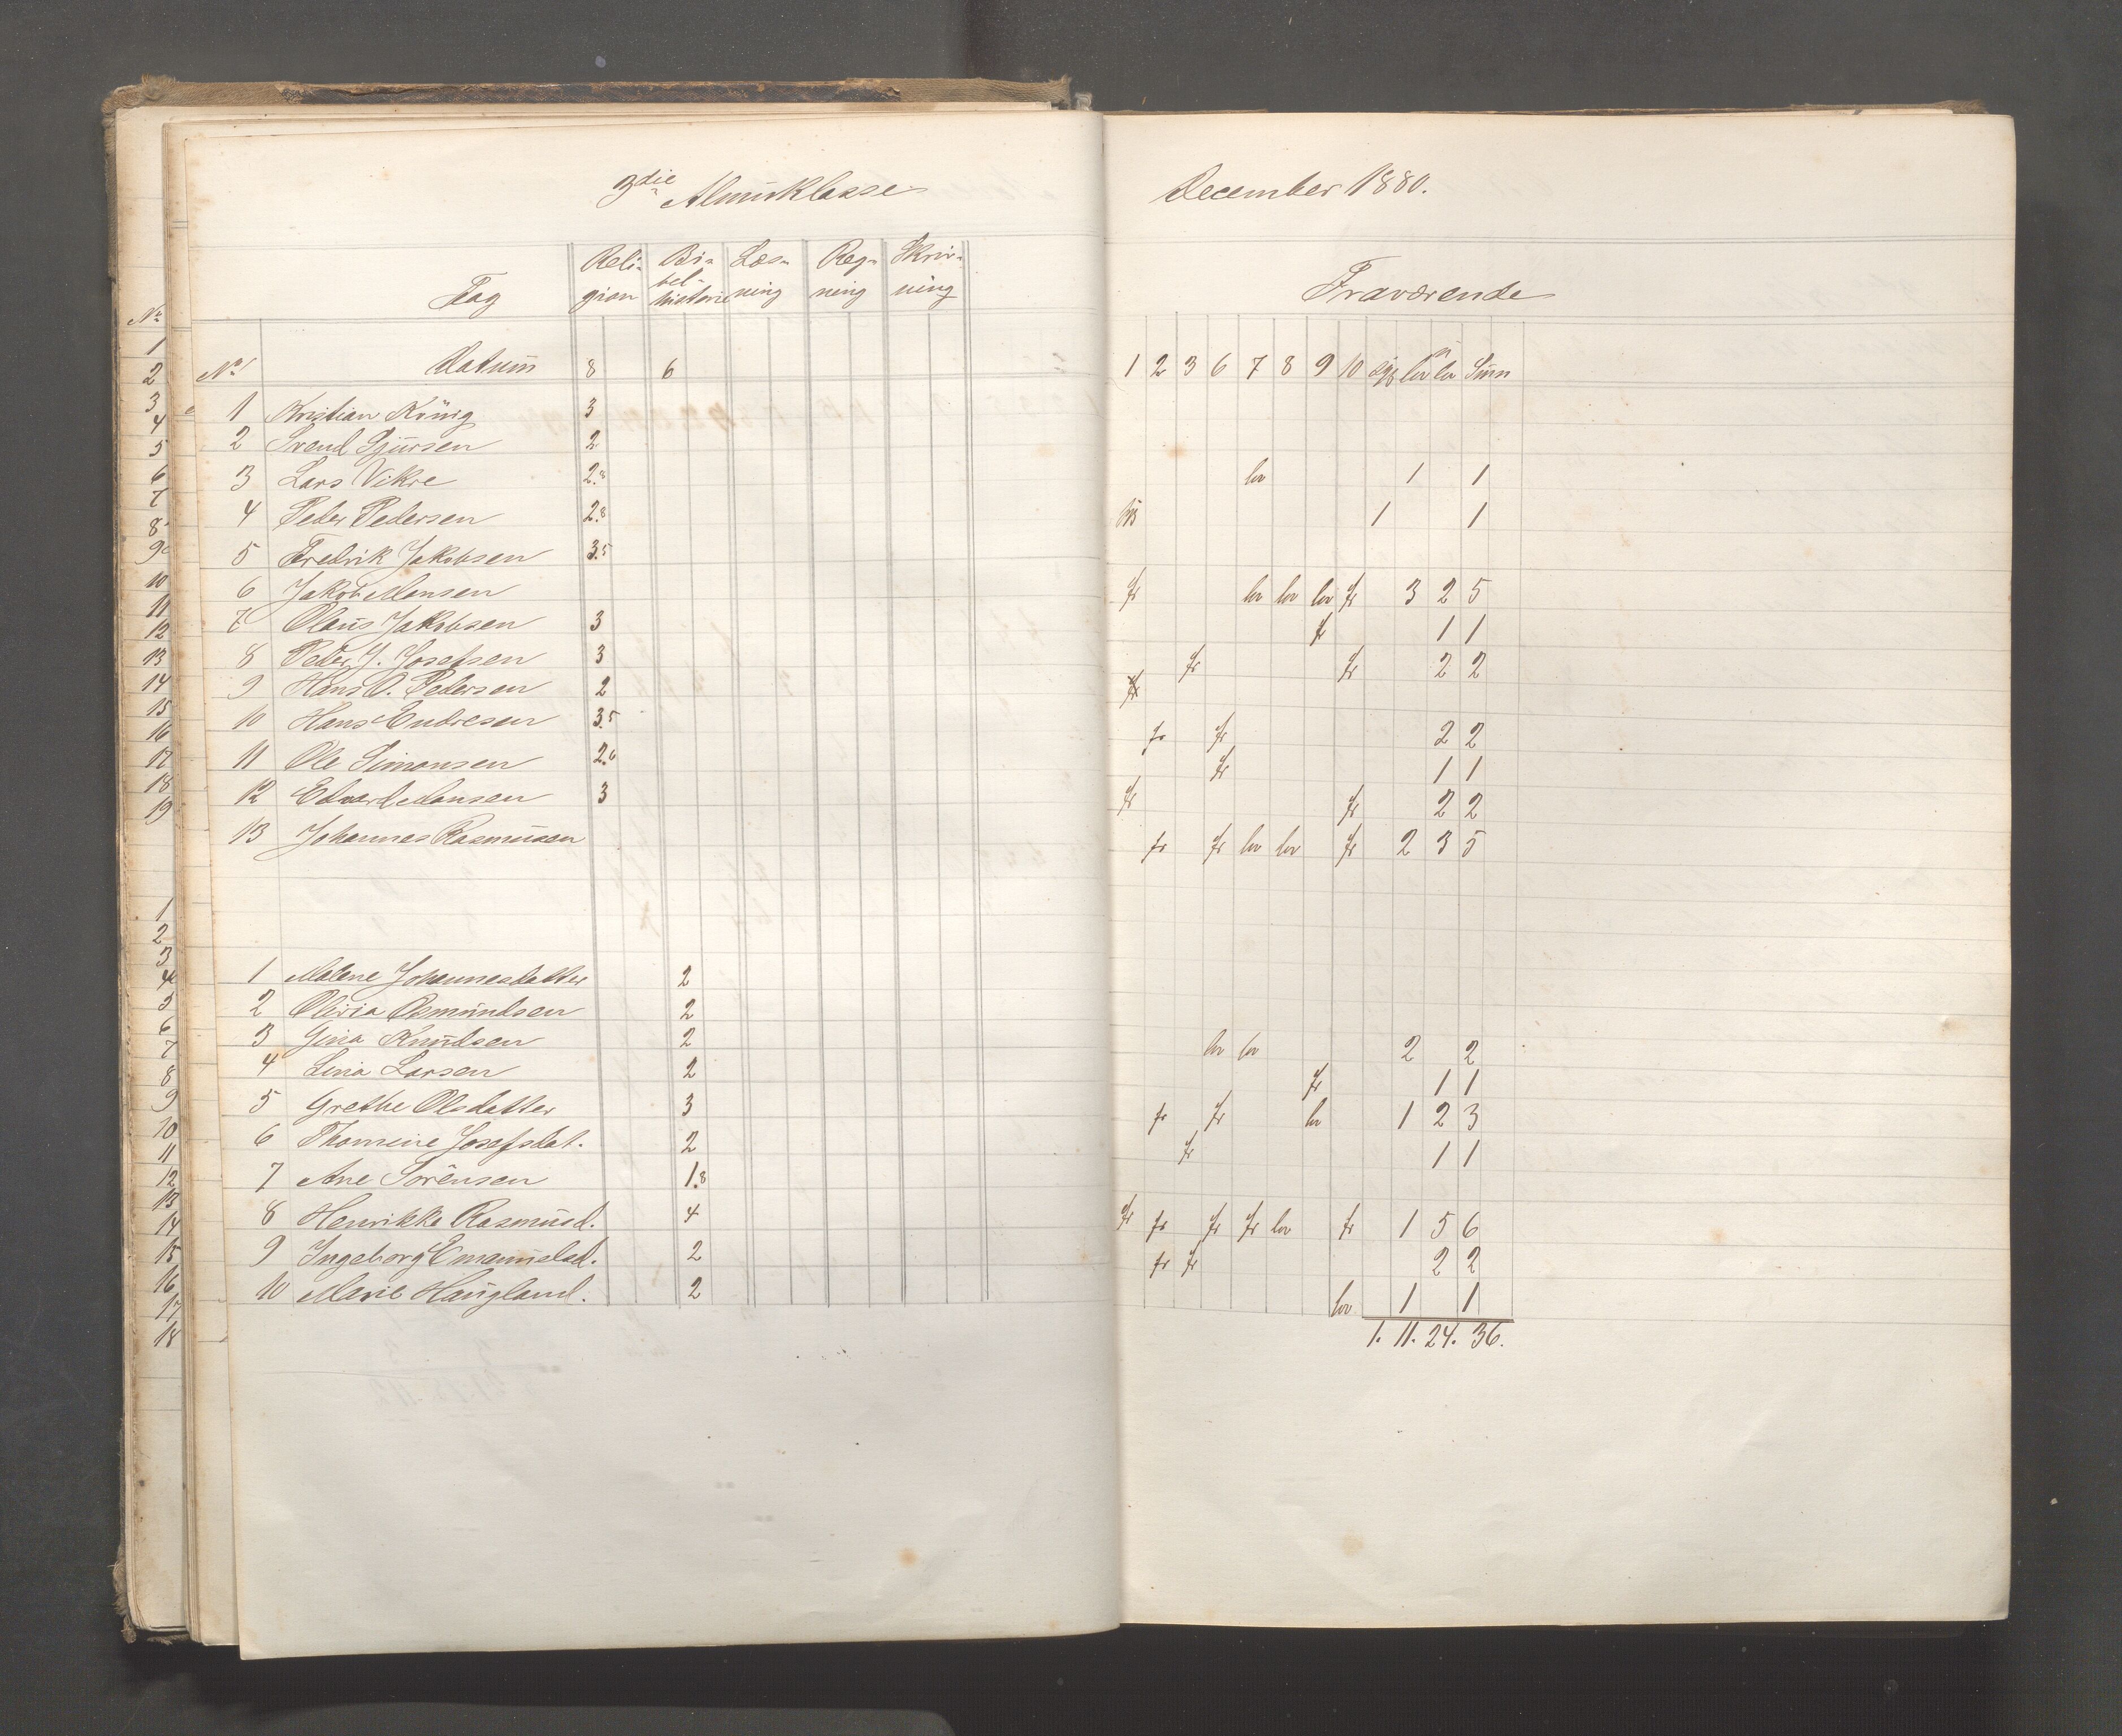 3die Almueklasse
Fag Religion Bibelhistorie Læsning Regning Skrivning
No Datum 8 6
1 Kristian König 3
2 Svend Sjursen 2
3 Lars Vikre 2.8
4 Peder Pedersen 2.8
5 Fredrik Jakobsen 3.5
6 Jakob Monsen
7 Olaus Jakobsen 3
8 Peder J. Josefsen 3
9 Hans O. Pedersen 2
10 Hans Endresen 3.5
11 Ole Simonsen 2.6
12 Edvard Monsen 3
13 Johannes Rasmussen
1 Malene Johannesdatter 2
2 Olivia Osmundsen 2
3 Gina Knudsen 2
4 Lina Larsen 2
5 Grethe Olsdatter 3
6 Thomine Josefsdat. 2
7 Ane Sörensen 1.8
8 Henrikke Rasmusd. 4
9 Ingeborg Emanuelsd. 2
10 Marie Haugland. 2
December 1880.
Fraværende
1 2 3 6 7 8 9 10 syg lov Sum
lov 1 1
1 1
fr lov lov lov fr 3 2 5
fr 1 1
fr fr 2 2
fr
fr fr 2 2
fr 1 1
fr fr 2 2
fr fr lov lov fr 2 3 5
lov lov 2 2
fr 1 1
fr fr lov 1 2 3
fr 1 1
fr fr fr fr lov fr 1 5 6
fr fr 2 2
lov 1 1
1. 11. 24. 36.
No
1
2
3
4
5
6
7
8
9
10
11
12
13
14
15
16
17
18
19
1
2
3
4
5
6
7
8
9
10
11
12
13
14
15
16
17
18